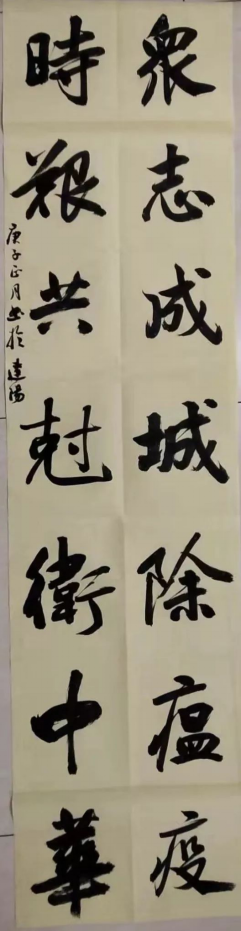 眾志成城除瘟疫
時艱共尅衛中華
庚子正月書於建陽